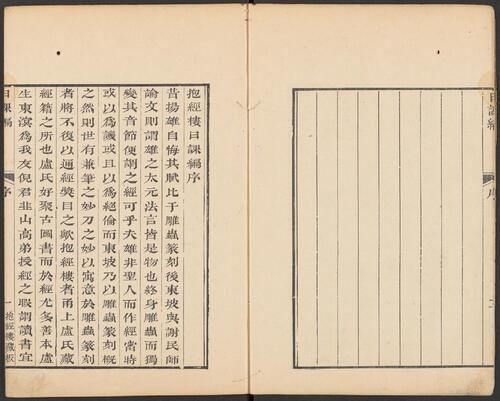 抱經樓日課編序
昔揚雄自悔其賦比于雕蟲篆刻後東坡與謝民師
論文則謂雄之太元法言皆是物也終身雕蟲而獨
變其音節便謂之經可乎夫雄非聖人而作經當時
或以爲譏或且以爲絕倫而東坡乃以雕蟲篆刻槪
之然則世有兼筆之妙刀之妙以寓意於雕蟲篆刻
者將不復以通經奬目之歟抱經樓者甬上盧氏藏
經籍之所也盧氏好聚古圖書而於經尤多善本盧
生東濱爲我友倪君韭山高弟授經之暇謂讀書宜
日課編
序
一
抱經樓藏板
日課編
序
二